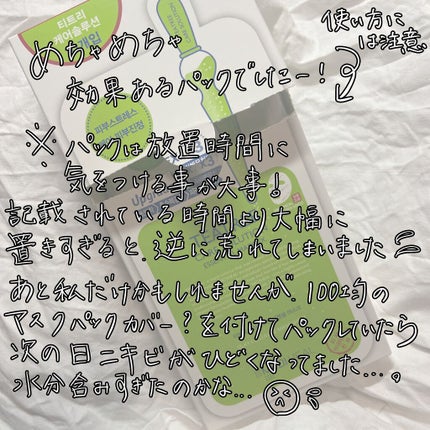 티트리
케어솔루션
使い方に
は注意
めちゃめちゃ
効果あるパックでしたー!
※ パックは放置時間に
気をつける事が大事!
記載されている時間より大幅に
置きすぎると、逆に荒れてしまいました
あと私だけかもしれませんが、100均の
マスクパックカバー?を付けてパックしていたら
次の日ニキビがひどくなってました...。
水分含みすぎたのかな...